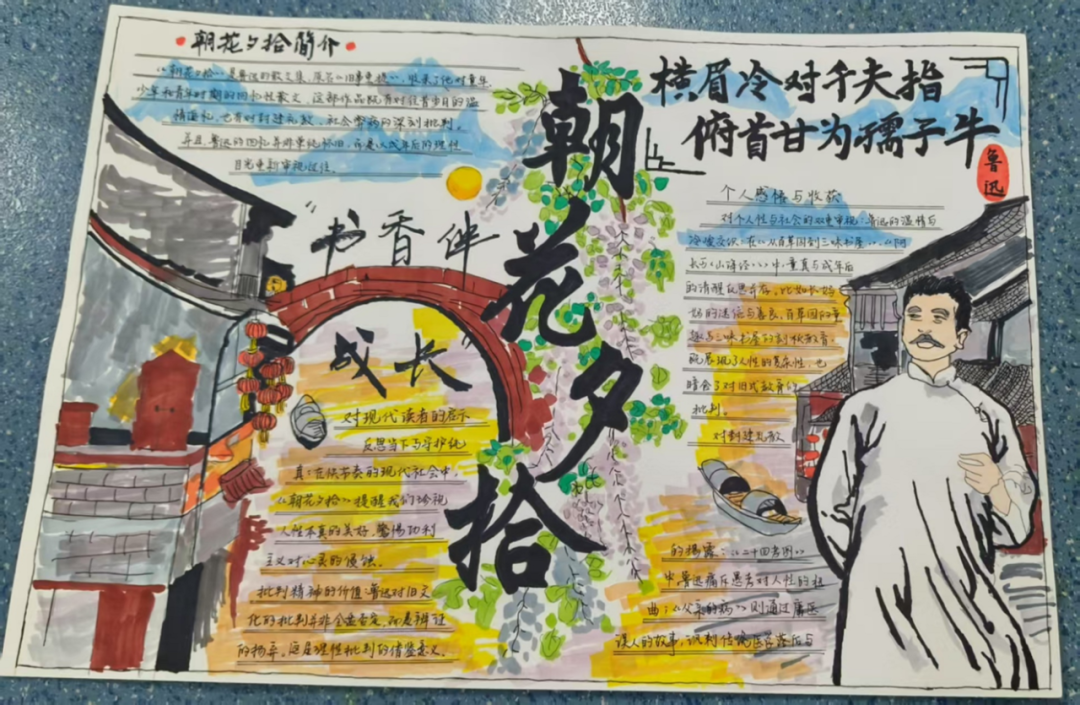 朝花夕拾简介
《朝花夕拾》是鲁迅的散文集，原名《旧事重提》，收录了他对童年
少年和青年时期的回忆性散文，这部作品既有对往昔岁月的温
情追忆，也有对封建礼教，社会弊病的深刻批判。
并且鲁迅的回忆并非单纯怀旧，而是以成年后的理性
目光重新审视过往。
横眉冷对千夫指
俯首甘为孺子牛
鲁迅
朝花夕拾
"书香伴
成长"
对现代读者的启示
反思当下与守护纯
真：在快节奏的现代社会中，
《朝花夕拾》提醒我们珍视
人性本真的美好，警惕功利
主义对心灵的侵蚀。
批判精神的价值：鲁迅对旧文
化的批判并非全盘否定，而是辩证
的扬弃。这是理性批判的借鉴意义。
个人感悟与收获
对个人性与社会的双重审视，鲁迅的温情与
冷峻交织：在《从百草园到三味书屋》《阿
长与《山海经》》中，童真与成年后
的清醒反思并存，比如长妈
妈的迷信与善良，百草园的童
趣与三味书屋的刻板教育，
既展现了人性的复杂性，也
暗含了对旧式教育的
批判。
对封建礼教
的揭露：《二十四孝图》
中鲁迅痛斥愚孝对人性的扭
曲；《父亲的病》则通过庸医
误人的故事，讽刺传统医药落后与